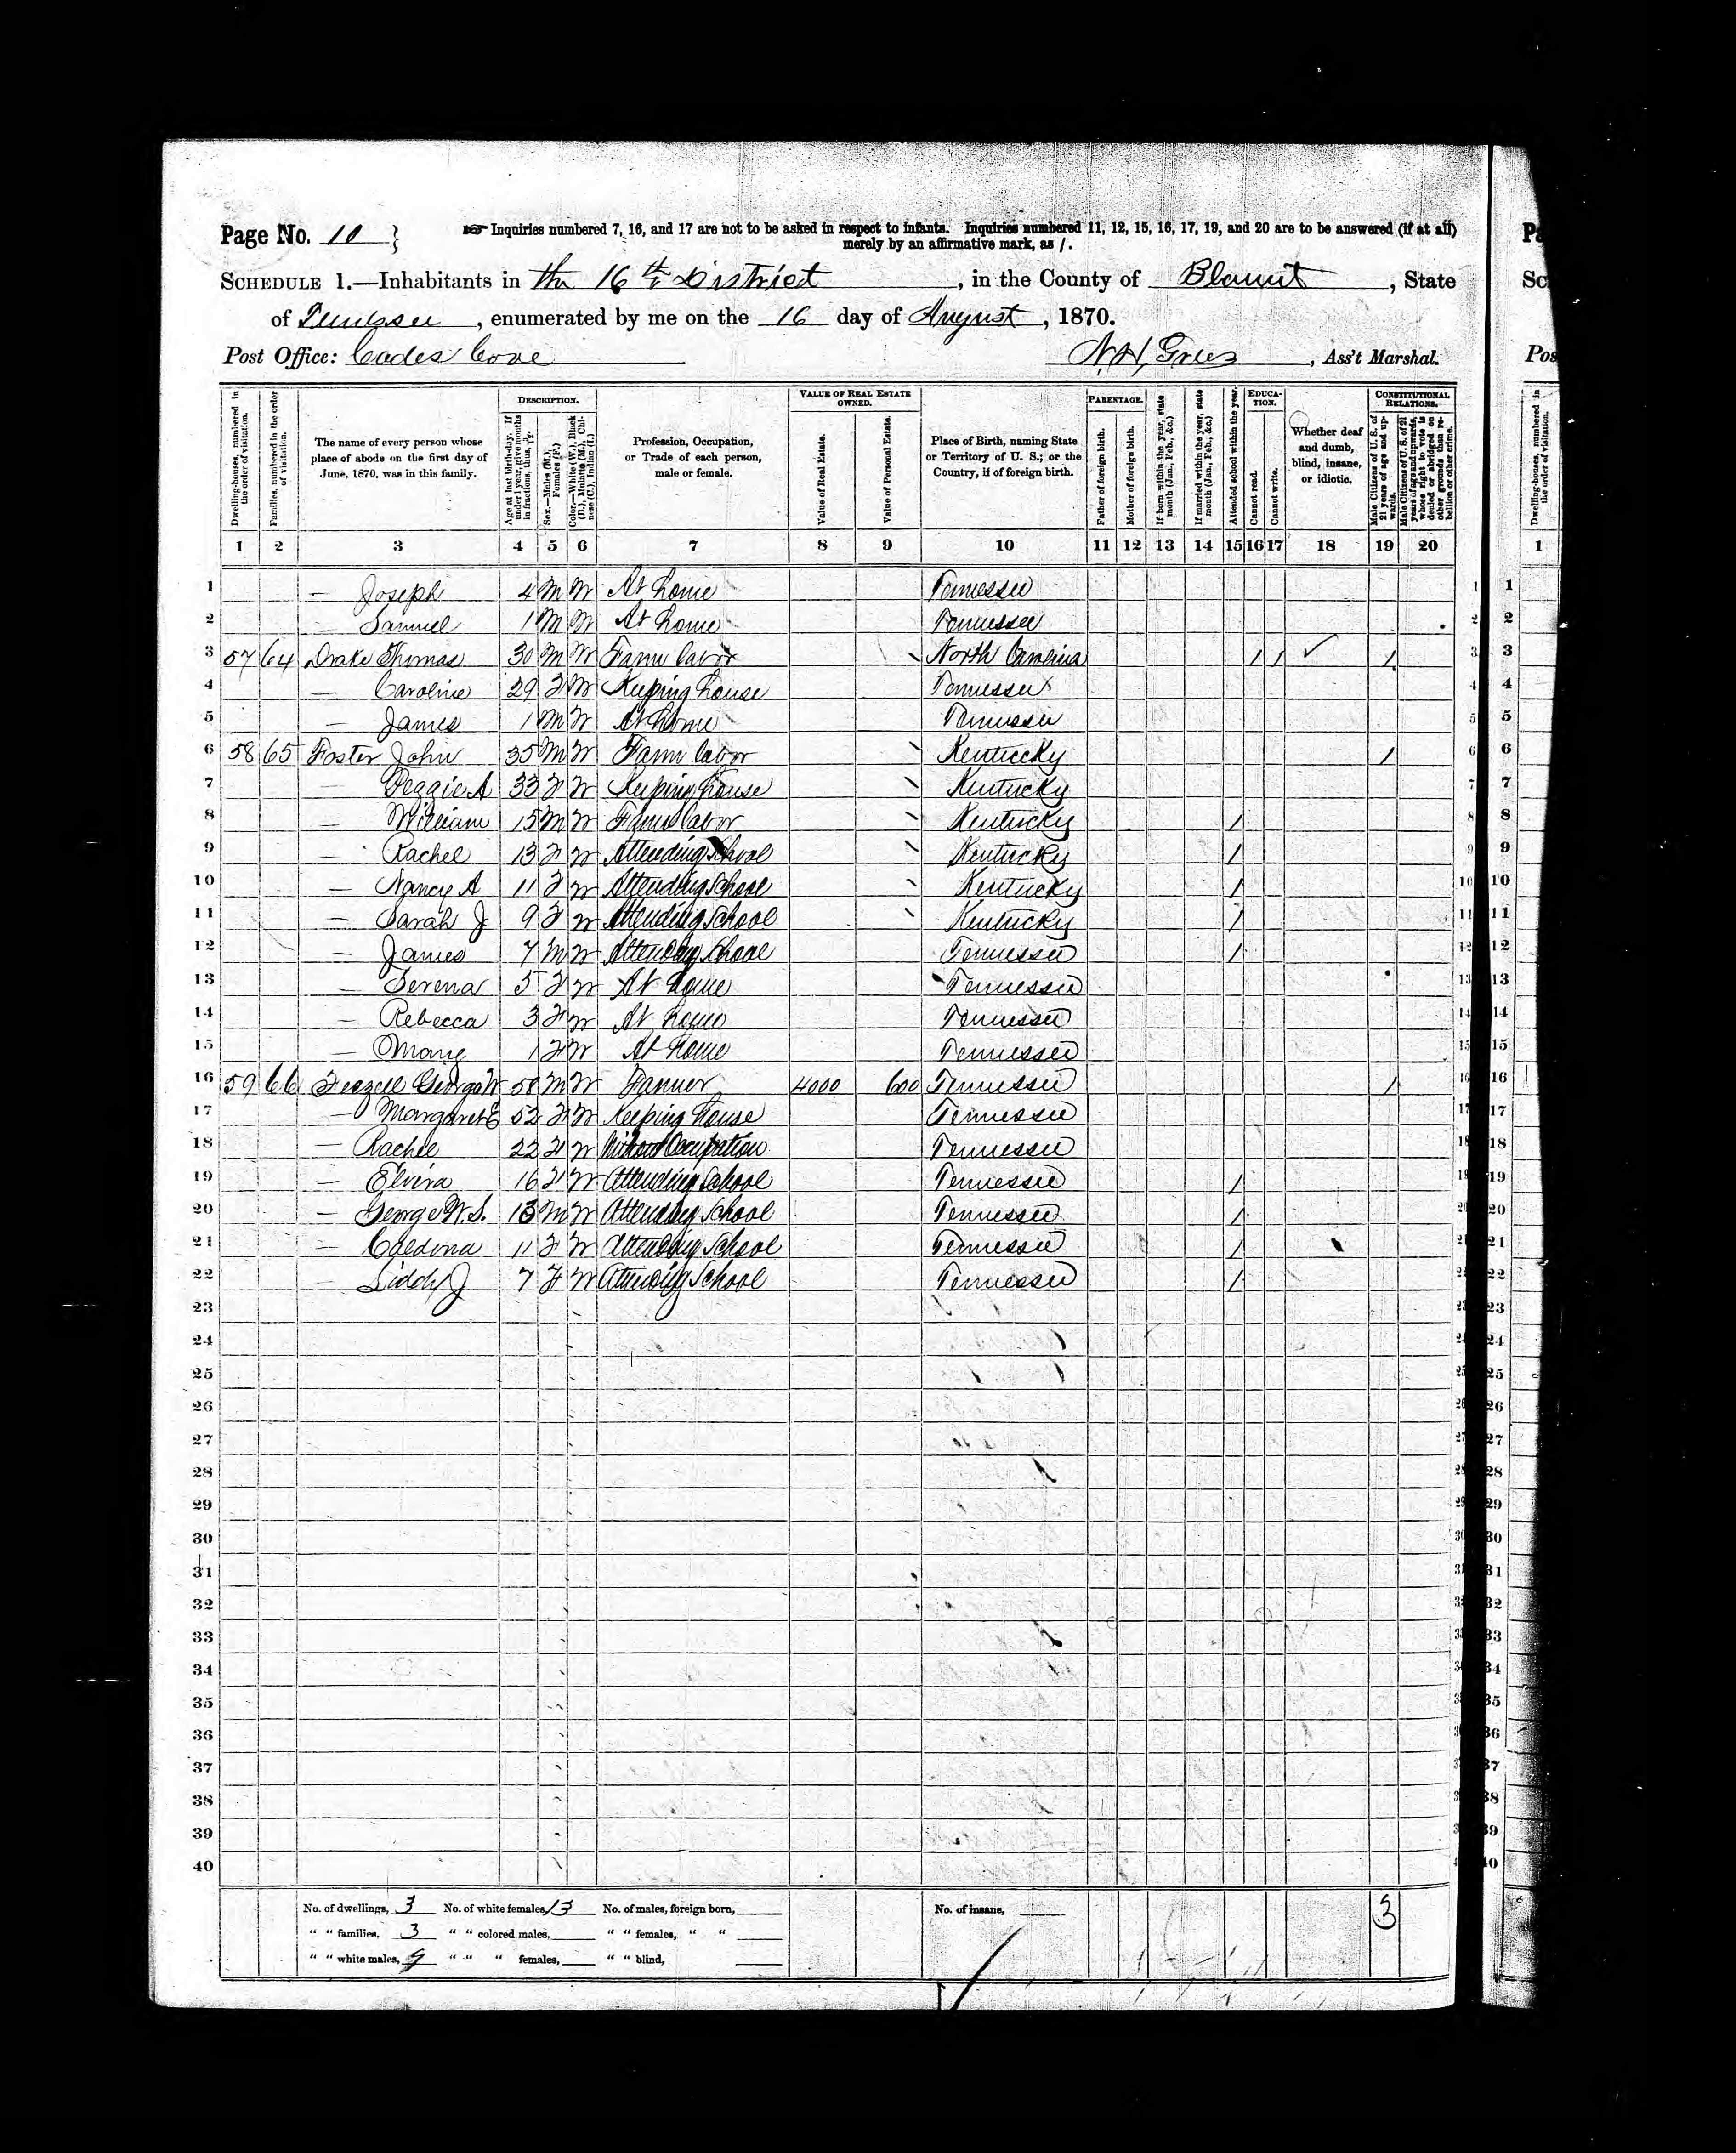 Page No. 10 }
☞ Inquiries numbered 7, 16, and 17 are not to be asked in respect to infants. Inquiries numbered 11, 12, 15, 16, 17, 19, and 20 are to be answered (if at all)
merely by an affirmative mark, as /.
SCHEDULE 1.—Inhabitants in the 16th District, in the County of Blount, State
of Tennessee, enumerated by me on the 16 day of August, 1870.
Post Office: Cades Cove
Ass't Marshal.
Dwelling-houses, numbered in the order of visitation.
Families, numbered in the order of visitation.
The name of every person whose place of abode on the first day of June, 1870, was in this family.
DESCRIPTION.
Age at last birth-day. If under 1 year, give months in fractions, thus, 3/12.
Sex.—Males (M.), Females (F.)
Color.—White (W.), Black (B.), Mulatto (M.), Chinese (C.), Indian (I.)
Profession, Occupation, or Trade of each person, male or female.
VALUE OF REAL ESTATE OWNED.
Value of Real Estate.
Value of Personal Estate.
Place of Birth, naming State or Territory of U. S.; or the Country, if of foreign birth.
PARENTAGE.
Father of foreign birth.
Mother of foreign birth.
If born within the year, state month (Jan., Feb., &c.)
If married within the year, state month (Jan., Feb., &c.)
Attended school within the year.
EDUCATION.
Cannot read.
Cannot write.
Whether deaf and dumb, blind, insane, or idiotic.
CONSTITUTIONAL RELATIONS.
Male Citizens of U. S. of 21 years of age and upwards.
Male Citizens of U. S. of 21 years of age and upwards, whose right to vote is denied or abridged on other grounds than rebellion or other crime.
1 2 3 4 5 6 7 8 9 10 11 12 13 14 15 16 17 18 19 20
1 — Joseph 4 M W At home Tennessee 1
2 — Samuel 1 M W At home Tennessee 2
3 57 64 Drake Thomas 30 M W Farm labor North Carolina / / ✓ / 3
4 — Caroline 29 F W Keeping house Tennessee 4
5 — James 1 M W At home Tennessee 5
6 58 65 Foster John 35 M W Farm labor Kentucky / 6
7 — Peggie A 33 F W Keeping house Kentucky 7
8 — William 15 M W Farm labor Kentucky / 8
9 — Rachel 13 F W Attending School Kentucky / 9
10 — Nancy A 11 F W Attending School Kentucky / 10
11 — Sarah J 9 F W Attending School Kentucky / 11
12 — James 7 M W Attending School Tennessee / 12
13 — Serena 5 F W At home Tennessee 13
14 — Rebecca 3 F W At home Tennessee 14
15 — Mary 1 F W At home Tennessee 15
16 59 66 George W 58 M W Farmer 4000 600 Tennessee / 16
17 — Margaret E 52 F W Keeping house Tennessee 17
18 — Rachel 22 F W Without Occupation Tennessee 18
19 — Elvira 16 F W Attending School Tennessee / 19
20 — George W. S. 13 M W Attending School Tennessee / 20
21 — Caldona 11 F W Attending School Tennessee / 21
22 — Liddy J 7 F W Attending School Tennessee / 22
23
24
25
26
27
28
29
30
31
32
33
34
35
36
37
38
39
40
No. of dwellings, 3 No. of white females, 13 No. of males, foreign born, No. of insane, 3
" " families, 3 " " colored males, " " females, " "
" " white males, 9 " " " females, " " blind,